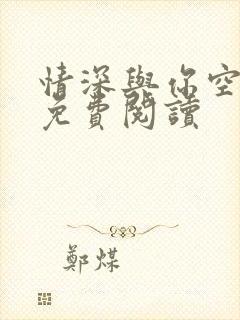 情深與你空
免費閱讀
鄭煤